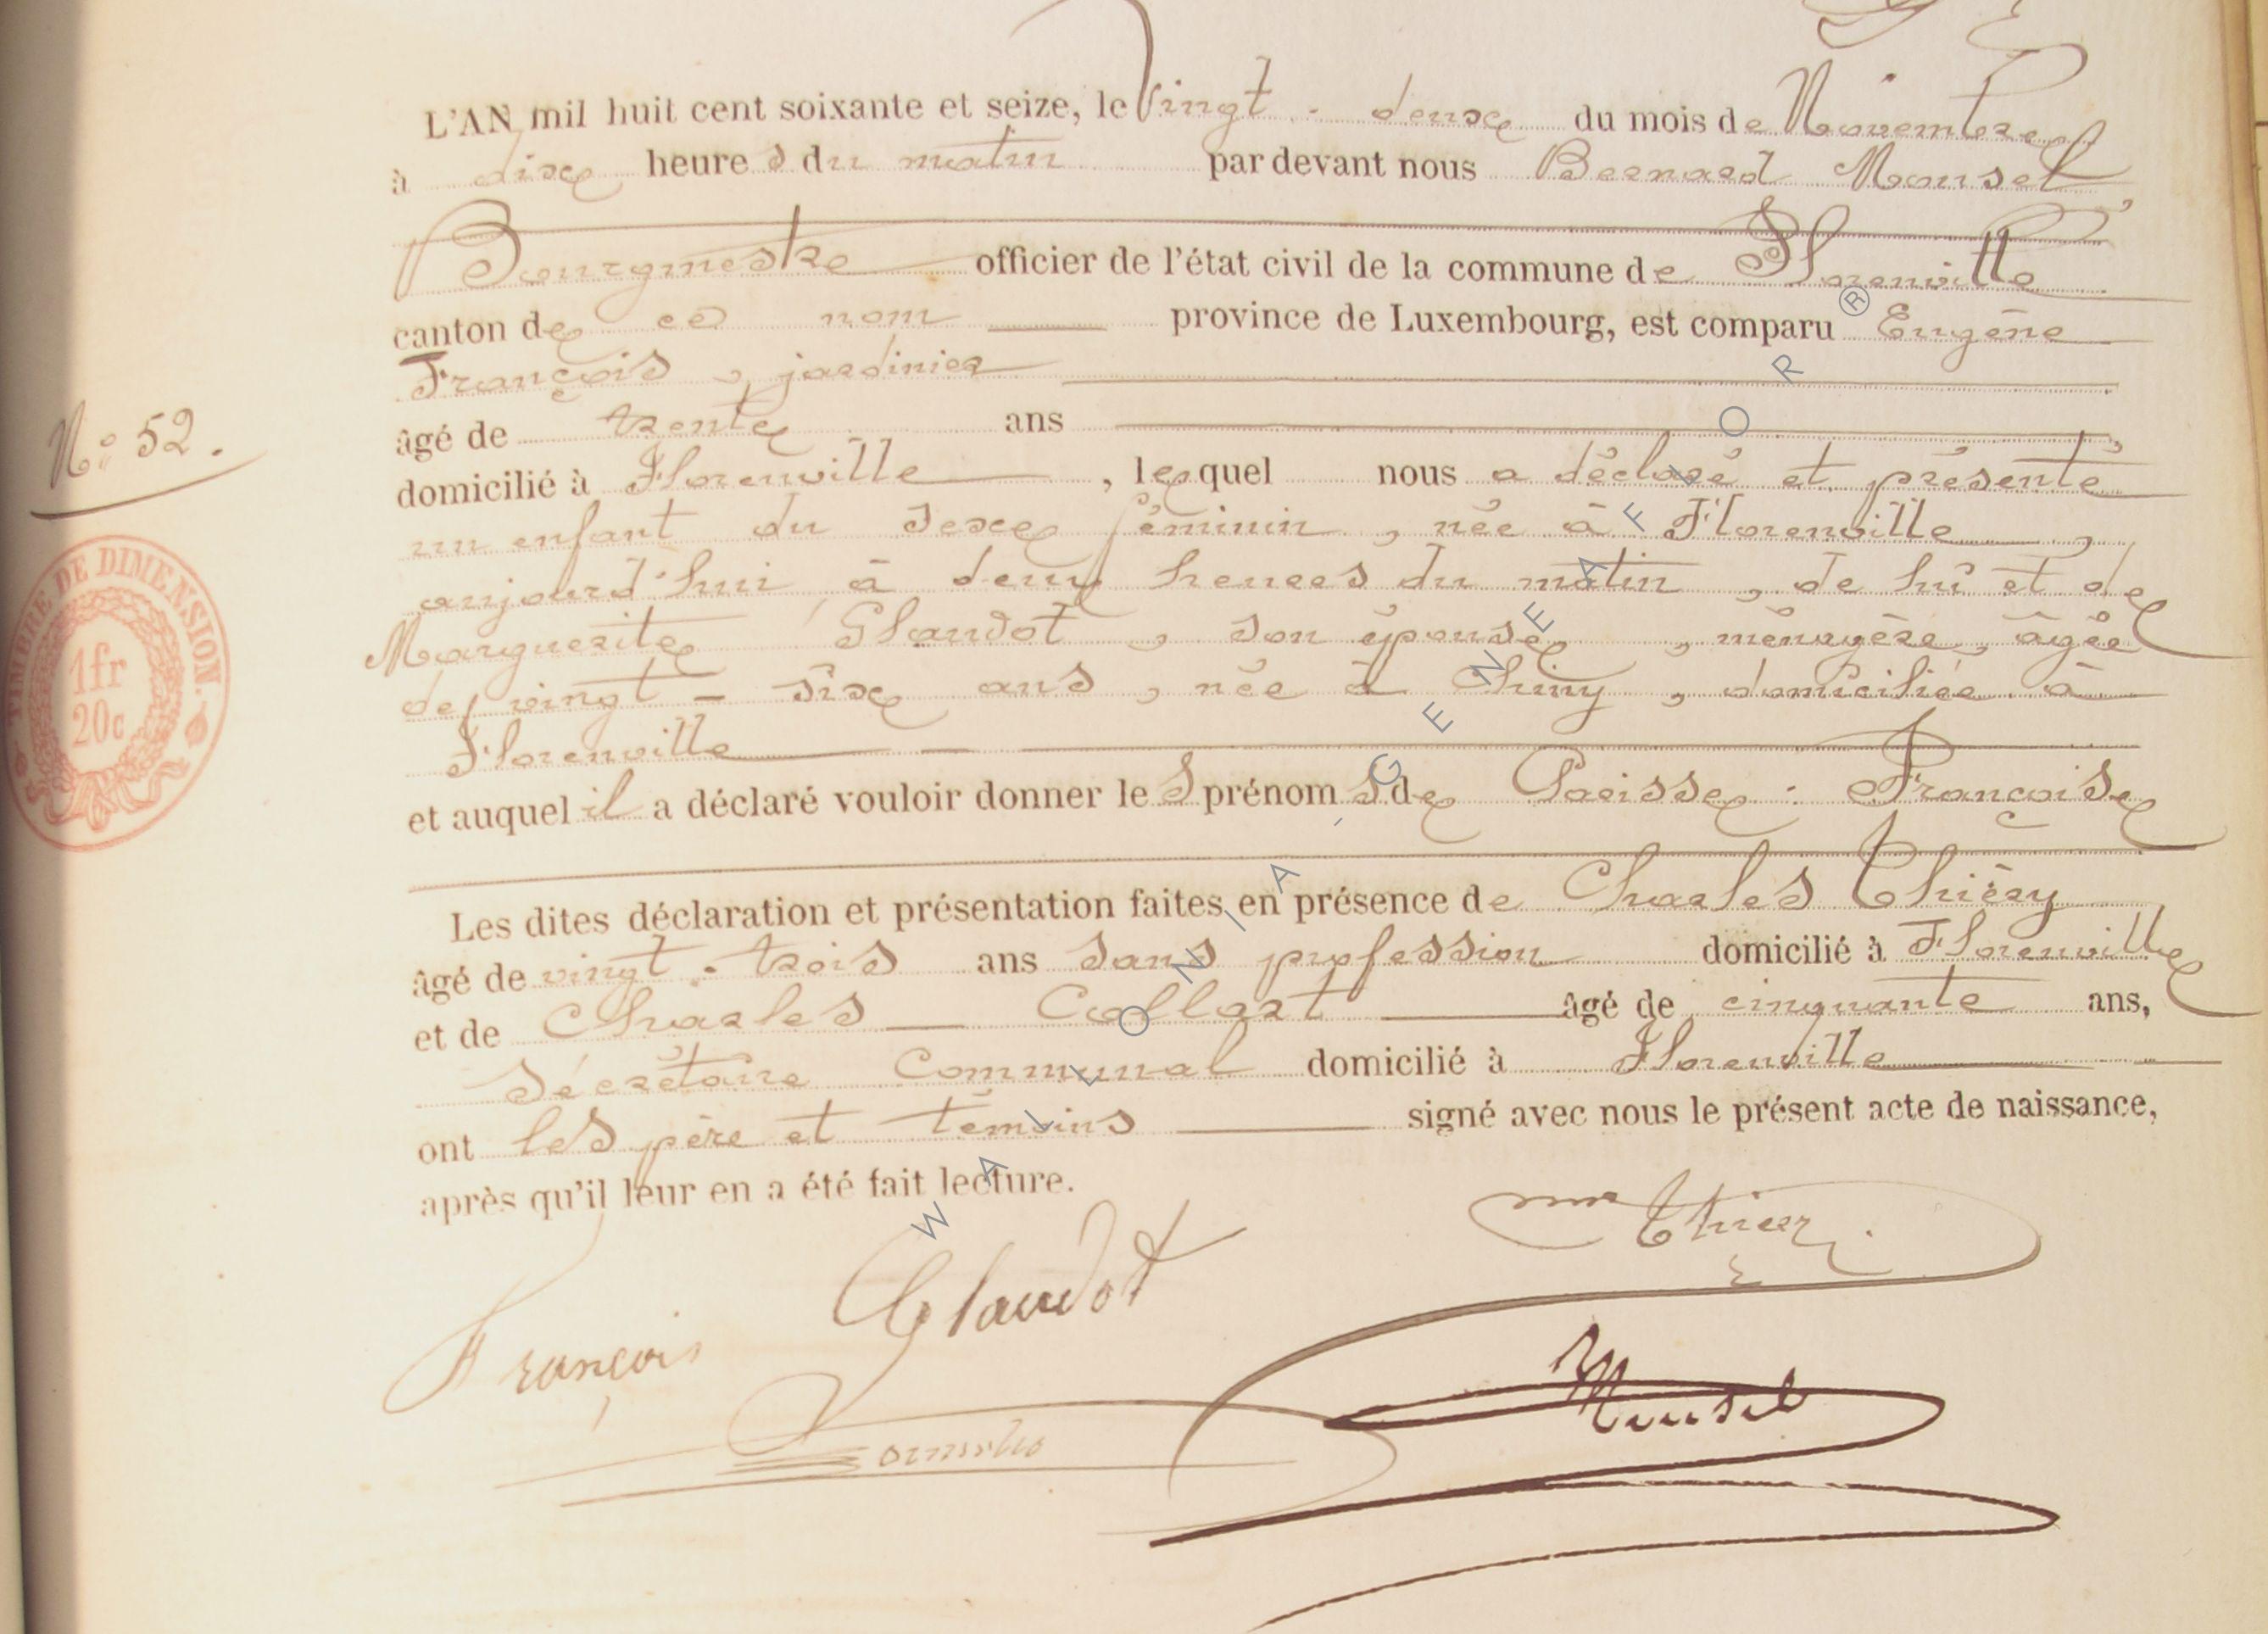 L'AN mil huit cent soixante et seize, le Vingt-deux du mois de Novembre
à dix heures du matin par devant nous Bernard Mousel
Bourgmestre officier de l'état civil de la commune de Florenville
canton de ce nom province de Luxembourg, est comparu Eugène
François, jardinier
âgé de trente ans
domicilié à Florenville, lequel nous a déclaré et présenté
N° 52.
un enfant du sexe féminin, née à Florenville,
aujourd'hui à deux heures du matin, de lui et de
Marguerite Glaudot, son épouse, ménagère, âgée
de vingt-six ans, née à Chiny, domiciliée à
Florenville
TIMBRE DE DIMENSION.
1fr
20c
et auquel il a déclaré vouloir donner les prénoms de : Françoise
Les dites déclaration et présentation faites en présence de Charles Thiéry
âgé de vingt-trois ans sans profession domicilié à Florenville
et de Charles Collart âgé de cinquante ans,
Sécrétaire Communal domicilié à Florenville
ont les père et témoins signé avec nous le présent acte de naissance,
après qu'il leur en a été fait lecture.
François Glaudot
Mousel
WALLONIA - GENEAFLOR ®